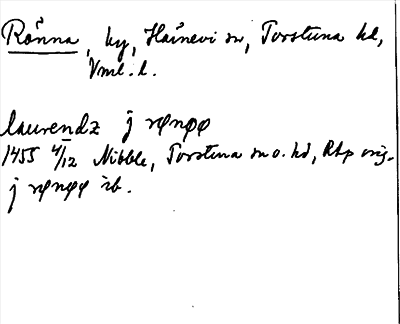 Rönna, by, Härnevi sn, Torstuna hd,
Vml. l.
laurendz j rønøø
1455 4/12 Nibble, Torstuna sn o. hd, RAp orig.
j rønøø ib.